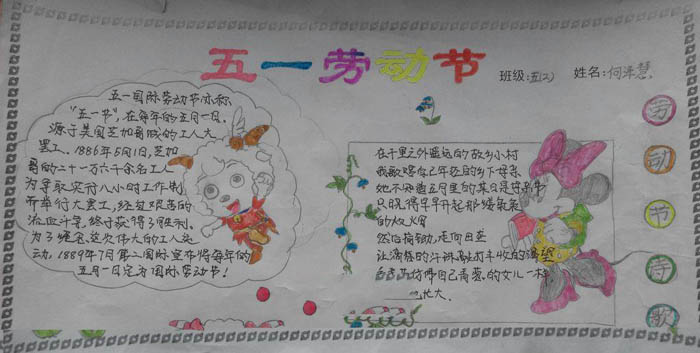 五一劳动节
班级:五(2) 姓名:何泽慧
五一国际劳动节亦称
"五一节",在每年的五月一日。
源于美国芝加哥城的工人大
罢工、1886年5月1日,芝加
哥的二十一万六千余名工人
为争取实行八小时工作制
而举行大罢工,经过艰苦的
流血斗争,终于获得了胜利。
为了纪念这次伟大的工人运
动,1889年7月第二国际宣布将每年的
五月一日定为国际劳动节!
在千里之外遥远的故乡小村
我敢嗅自己年轻的乡下母亲
她不知道五月里的某日是
只晓得早早开起那缕氤氲
的炊火烟
然后荷锄,走向田茎
让满瓶的汗拼凑对丰收的渴望
自己青葱的女儿一样
茁壮大。
劳
动
节
诗
歌